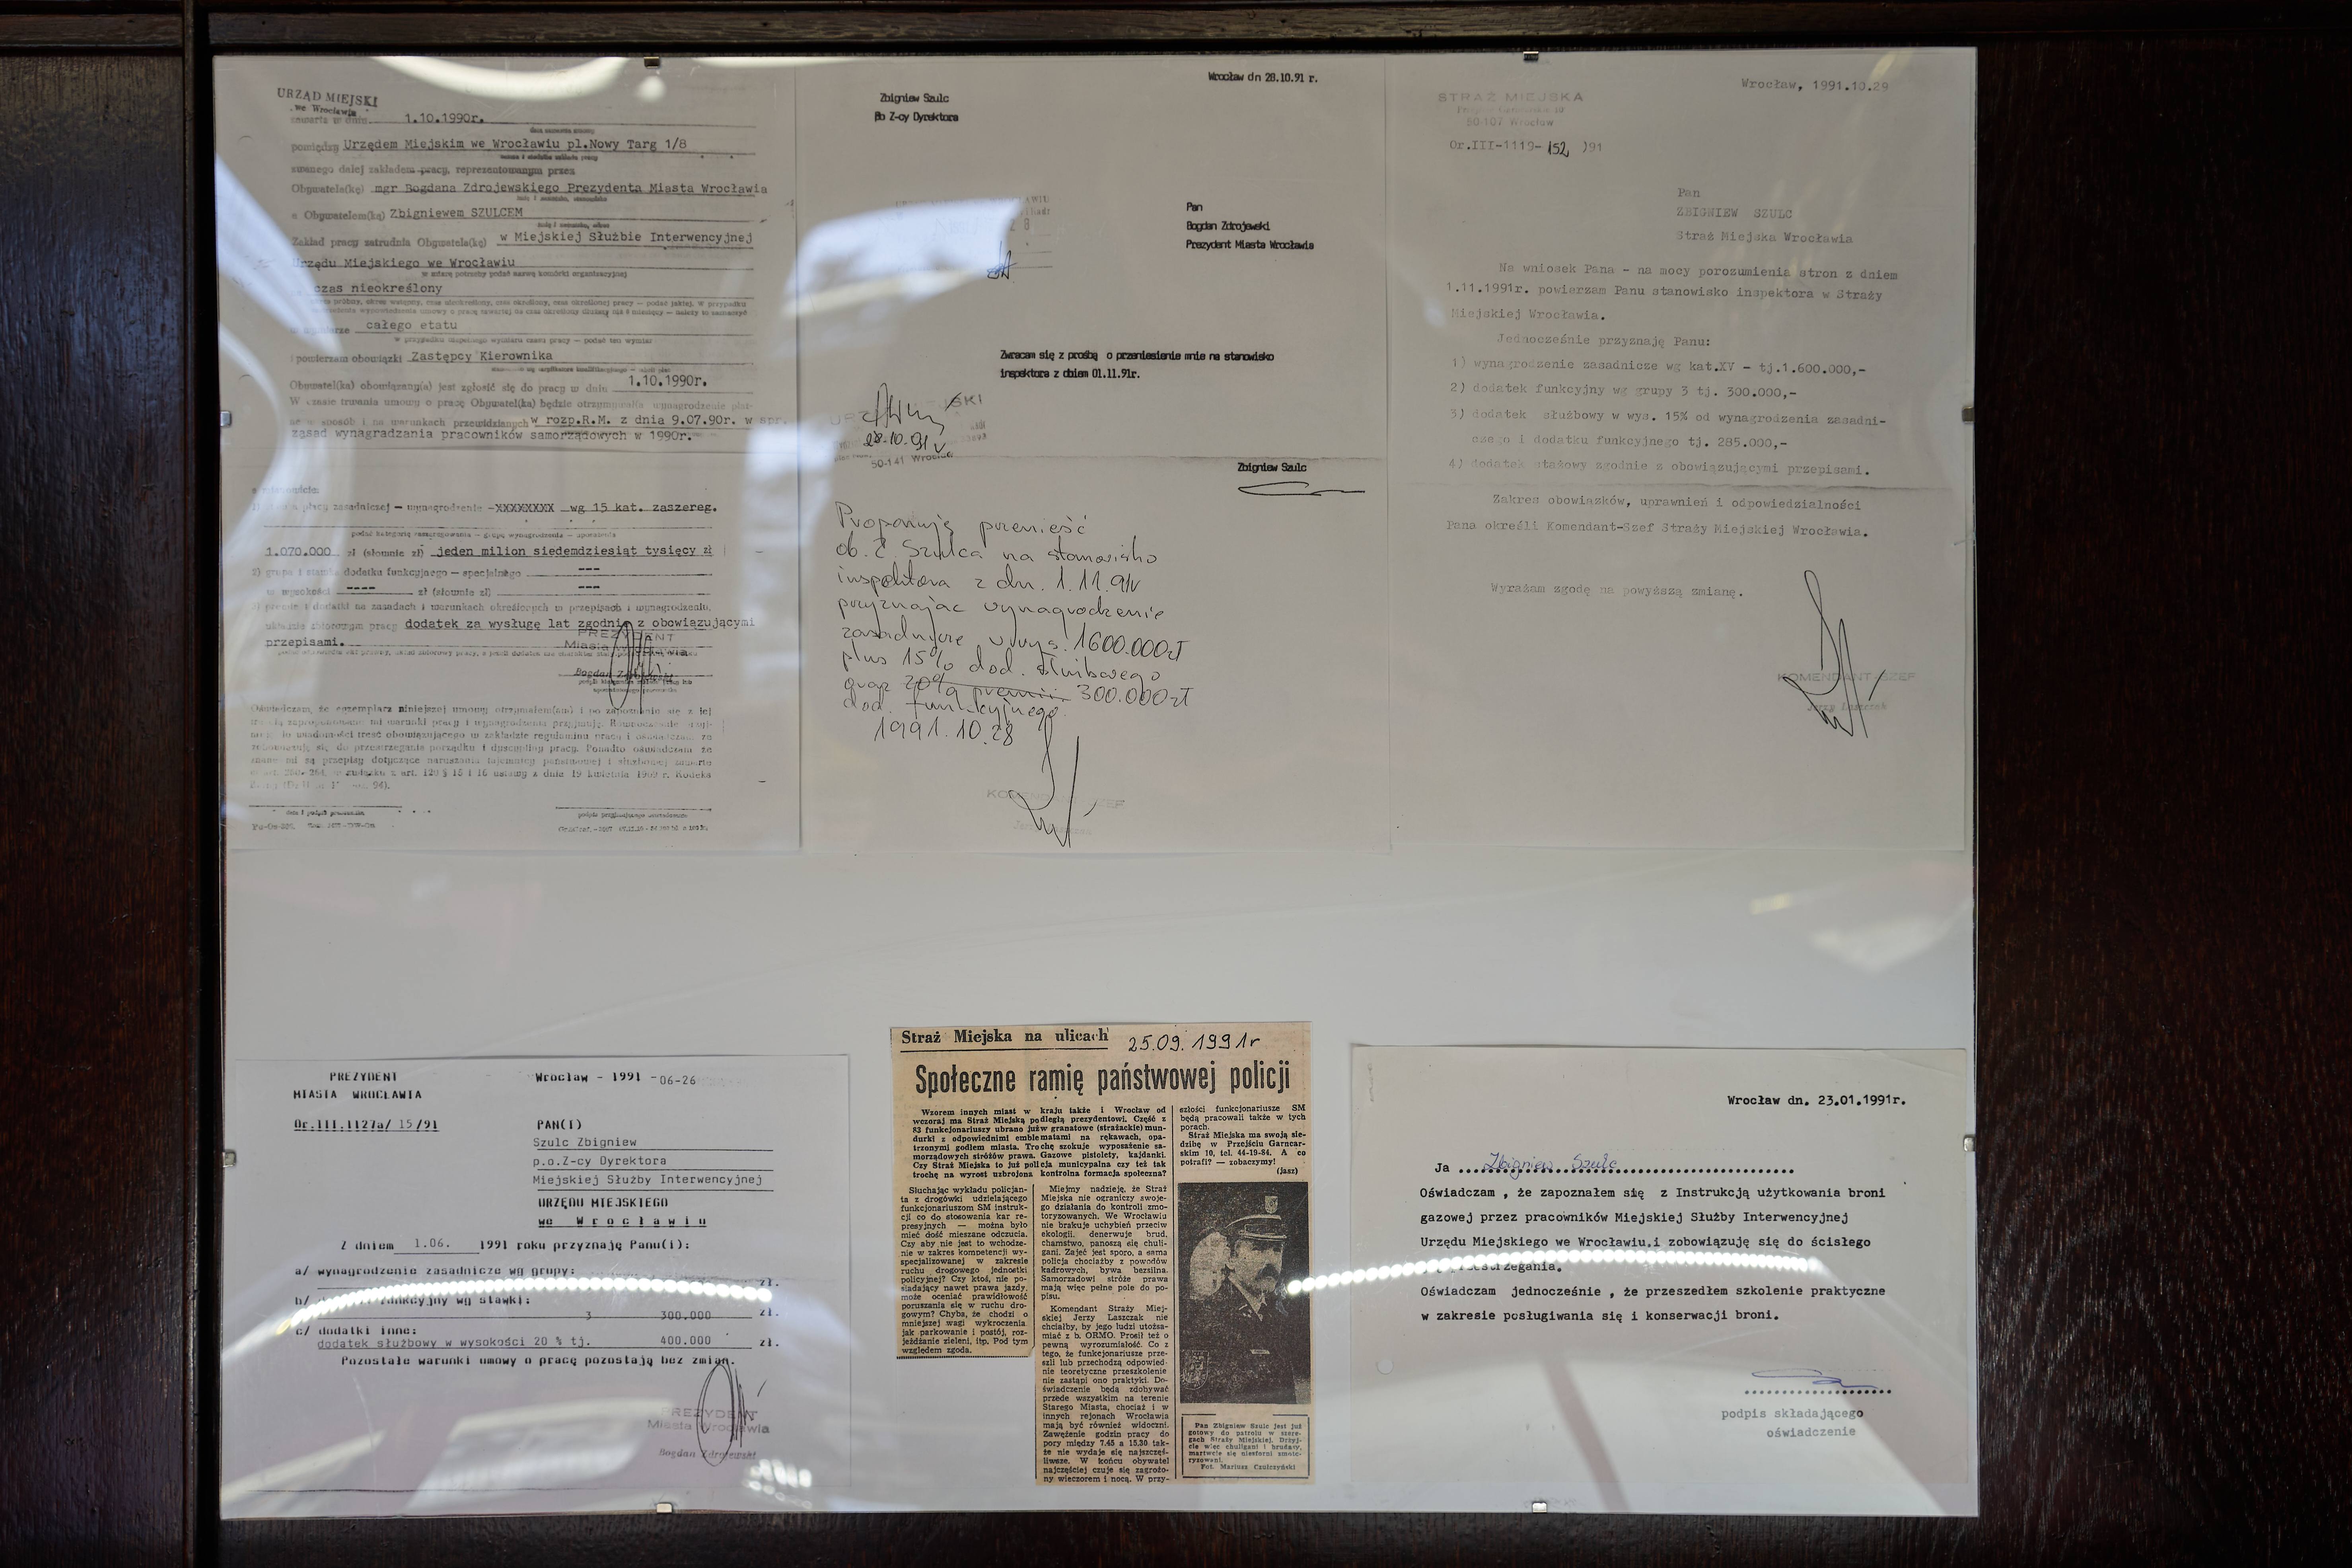 URZĄD MIEJSKI
we Wrocławiu
zawarta w dniu 1.10.1990r.
pomiędzy Urzędem Miejskim we Wrocławiu pl.Nowy Targ 1/8
zwanego dalej zakładem pracy, reprezentowanym przez
Obywatela(kę) mgr Bogdana Zdrojewskiego Prezydenta Miasta Wrocławia
a Obywatelem(ką) Zbigniewem SZULCEM
Zakład pracy zatrudnia Obywatela(kę) w Miejskiej Służbie Interwencyjnej
Urzędu Miejskiego we Wrocławiu
w miarę potrzeby podać nazwę komórki organizacyjnej
czas nieokreślony
całego etatu
i powierzam obowiązki Zastępcy Kierownika
Obywatel(ka) obowiązany(a) jest zgłosić się do pracy w dniu 1.10.1990r.
W czasie trwania umowy o pracę Obywatel(ka) będzie otrzymywał(a) wynagrodzenie płat-
ne w sposób i na warunkach przewidzianych w rozp.R.M. z dnia 9.07.90r. w spr.
zasad wynagradzania pracowników samorządowych w 1990r.
płacy zasadniczej — wynagrodzenie -XXXXXXXX wg 15 kat. zaszereg.
1.070.000 zł (słownie zł) jeden milion siedemdziesiąt tysięcy zł
2) grupa i stawka dodatku funkcyjnego — specjalnego ---
w wysokości ---- zł (słownie zł) ---
3) premie i dodatki na zasadach i warunkach określonych w przepisach i wynagrodzeniu,
układzie zbiorowym pracy dodatek za wysługę lat zgodnie z obowiązującymi
przepisami.
PREZYDENT
Miasta Wrocławia
Bogdan Zdrojewski
Oświadczam, że egzemplarz niniejszej umowy otrzymałem(am) i po zapoznaniu się z jej
treścią zaproponowane mi warunki pracy i wynagrodzenia przyjmuję. Równocześnie przyj-
muję do wiadomości treść obowiązującego w zakładzie regulaminu pracy i oświadczam, że
zobowiązuję się do przestrzegania porządku i dyscypliny pracy. Ponadto oświadczam że
znane mi są przepisy dotyczące naruszania tajemnicy państwowej i służbowej zawarte
data i podpis pracownika
Wrocław dn 28.10.91 r.
Zbigniew Szulc
Z-cy Dyrektora
Pan
Bogdan Zdrojewski
Prezydent Miasta Wrocławia
Zwracam się z prośbą o przeniesienie mnie na stanowisko
inspektora z dniem 01.11.91r.
28.10.91r
50-141 Wrocław
Zbigniew Szulc
Proponuję przenieść
ob. Z. Szulca na stanowisko
inspektora z dn. 1.11.91r
przyznając wynagrodzenie
zasadnicze w wys. 1600.000zł
plus 15% dod. służbowego
oraz 20% premii 300.000zł
dod. funkcyjnego.
1991.10.28
KOMENDANT SZEF
Jerzy Laszczak
Wrocław, 1991.10.29
STRAŻ MIEJSKA
50-107 Wrocław
Or.III-1119-152/91
Pan
ZBIGNIEW SZULC
Straż Miejska Wrocławia
Na wniosek Pana - na mocy porozumienia stron z dniem
1.11.1991r. powierzam Panu stanowisko inspektora w Straży
Miejskiej Wrocławia.
Jednocześnie przyznaję Panu:
1) wynagrodzenie zasadnicze wg kat.XV - tj.1.600.000,-
2) dodatek funkcyjny wg grupy 3 tj. 300.000,-
3) dodatek służbowy w wys. 15% od wynagrodzenia zasadni-
czego i dodatku funkcyjnego tj. 285.000,-
4) dodatek stażowy zgodnie z obowiązującymi przepisami.
Zakres obowiązków, uprawnień i odpowiedzialności
Pana określi Komendant-Szef Straży Miejskiej Wrocławia.
Wyrażam zgodę na powyższą zmianę.
KOMENDANT SZEF
Jerzy Laszczak
PREZYDENT
MIASTA WROCŁAWIA
Wrocław - 1991 -06-26
Or.III.1127a/ 15/91
PAN(I)
Szulc Zbigniew
p.o.Z-cy Dyrektora
Miejskiej Służby Interwencyjnej
URZĘDU MIEJSKIEGO
we Wrocławiu
Z dniem 1.06. 1991 roku przyznaję Panu(i):
a/ wynagrodzenie zasadnicze wg grupy:
zł.
b/ funkcyjny wg stawki:
3 300.000 zł.
c/ dodatki inne:
dodatek służbowy w wysokości 20 % tj. 400.000 zł.
Pozostałe warunki umowy o pracę pozostają bez zmian.
PREZYDENT
Miasta Wrocławia
Bogdan Zdrojewski
Straż Miejska na ulicach
25.09.1991r
Społeczne ramię państwowej policji
Wzorem innych miast w kraju także i Wrocław od
wczoraj ma Straż Miejską podległą prezydentowi. Część z
83 funkcjonariuszy ubrano już w granatowe (strażackie) mun-
durki z odpowiednimi emblematami na rękawach, opa-
trzonymi godłem miasta. Trochę szokuje wyposażenie sa-
morządowych stróżów prawa. Gazowe pistolety, kajdanki.
Czy Straż Miejska to już policja municypalna czy też tak
trochę na wyrost uzbrojona kontrolna formacja społeczna?
Słuchając wykładu policjan-
ta z drogówki udzielającego
funkcjonariuszom SM instruk-
cji co do stosowania kar re-
presyjnych — można było
mieć dość mieszane odczucia.
Czy aby nie jest to wchodze-
nie w zakres kompetencji wy-
specjalizowanej w zakresie
ruchu drogowego jednostki
policyjnej? Czy ktoś, nie po-
siadający nawet prawa jazdy,
może oceniać prawidłowość
poruszania się w ruchu dro-
gowym? Chyba, że chodzi o
mniejszej wagi wykroczenia
jak parkowanie i postój, roz-
jeżdżanie zieleni, itp. Pod tym
względem zgoda.
Miejmy nadzieję, że Straż
Miejska nie ograniczy swoje-
go działania do kontroli zmo-
toryzowanych. We Wrocławiu
nie brakuje uchybień przeciw
ekologii, denerwuje brud,
chamstwo, panoszą się chuli-
gani. Zajęć jest sporo, a sama
policja chociażby z powodów
kadrowych, bywa bezsilna.
Samorządowi stróże prawa
mają więc pełne pole do po-
pisu.
Komendant Straży Miej-
skiej Jerzy Laszczak nie
chciałby, by jego ludzi utożsa-
miać z b. ORMO. Prosił też o
pewną wyrozumiałość. Co z
tego, że funkcjonariusze prze-
szli lub przechodzą odpowied-
nie teoretyczne przeszkolenie
nie zastąpi ono praktyki. Do-
świadczenie będą zdobywać
przede wszystkim na terenie
Starego Miasta, chociaż i w
innych rejonach Wrocławia
mają być również widoczni.
Zawężenie godzin pracy do
pory między 7.45 a 15.30 tak-
że nie wydaje się najszczęś-
liwsze. W końcu obywatel
najczęściej czuje się zagrożo-
ny wieczorem i nocą. W przy-
szłości funkcjonariusze SM
będą pracowali także w tych
porach.
Straż Miejska ma swoją sie-
dzibę w Przejściu Garncar-
skim 10, tel. 44-19-84. A co
potrafi? — zobaczymy!
(jasz)
Pan Zbigniew Szulc jest już
gotowy do patrolu w szere-
gach Straży Miejskiej. Drżyj-
cie więc chuligani i brudasy,
martwcie się niesforni zmoto-
ryzowani.
Fot. Mariusz Czulczyński
Wrocław dn. 23.01.1991r.
Ja Zbigniew Szulc
Oświadczam , że zapoznałem się z Instrukcją użytkowania broni
gazowej przez pracowników Miejskiej Służby Interwencyjnej
Urzędu Miejskiego we Wrocławiu,i zobowiązuję się do ścisłego
przestrzegania.
Oświadczam jednocześnie , że przeszedłem szkolenie praktyczne
w zakresie posługiwania się i konserwacji broni.
podpis składającego
oświadczenie